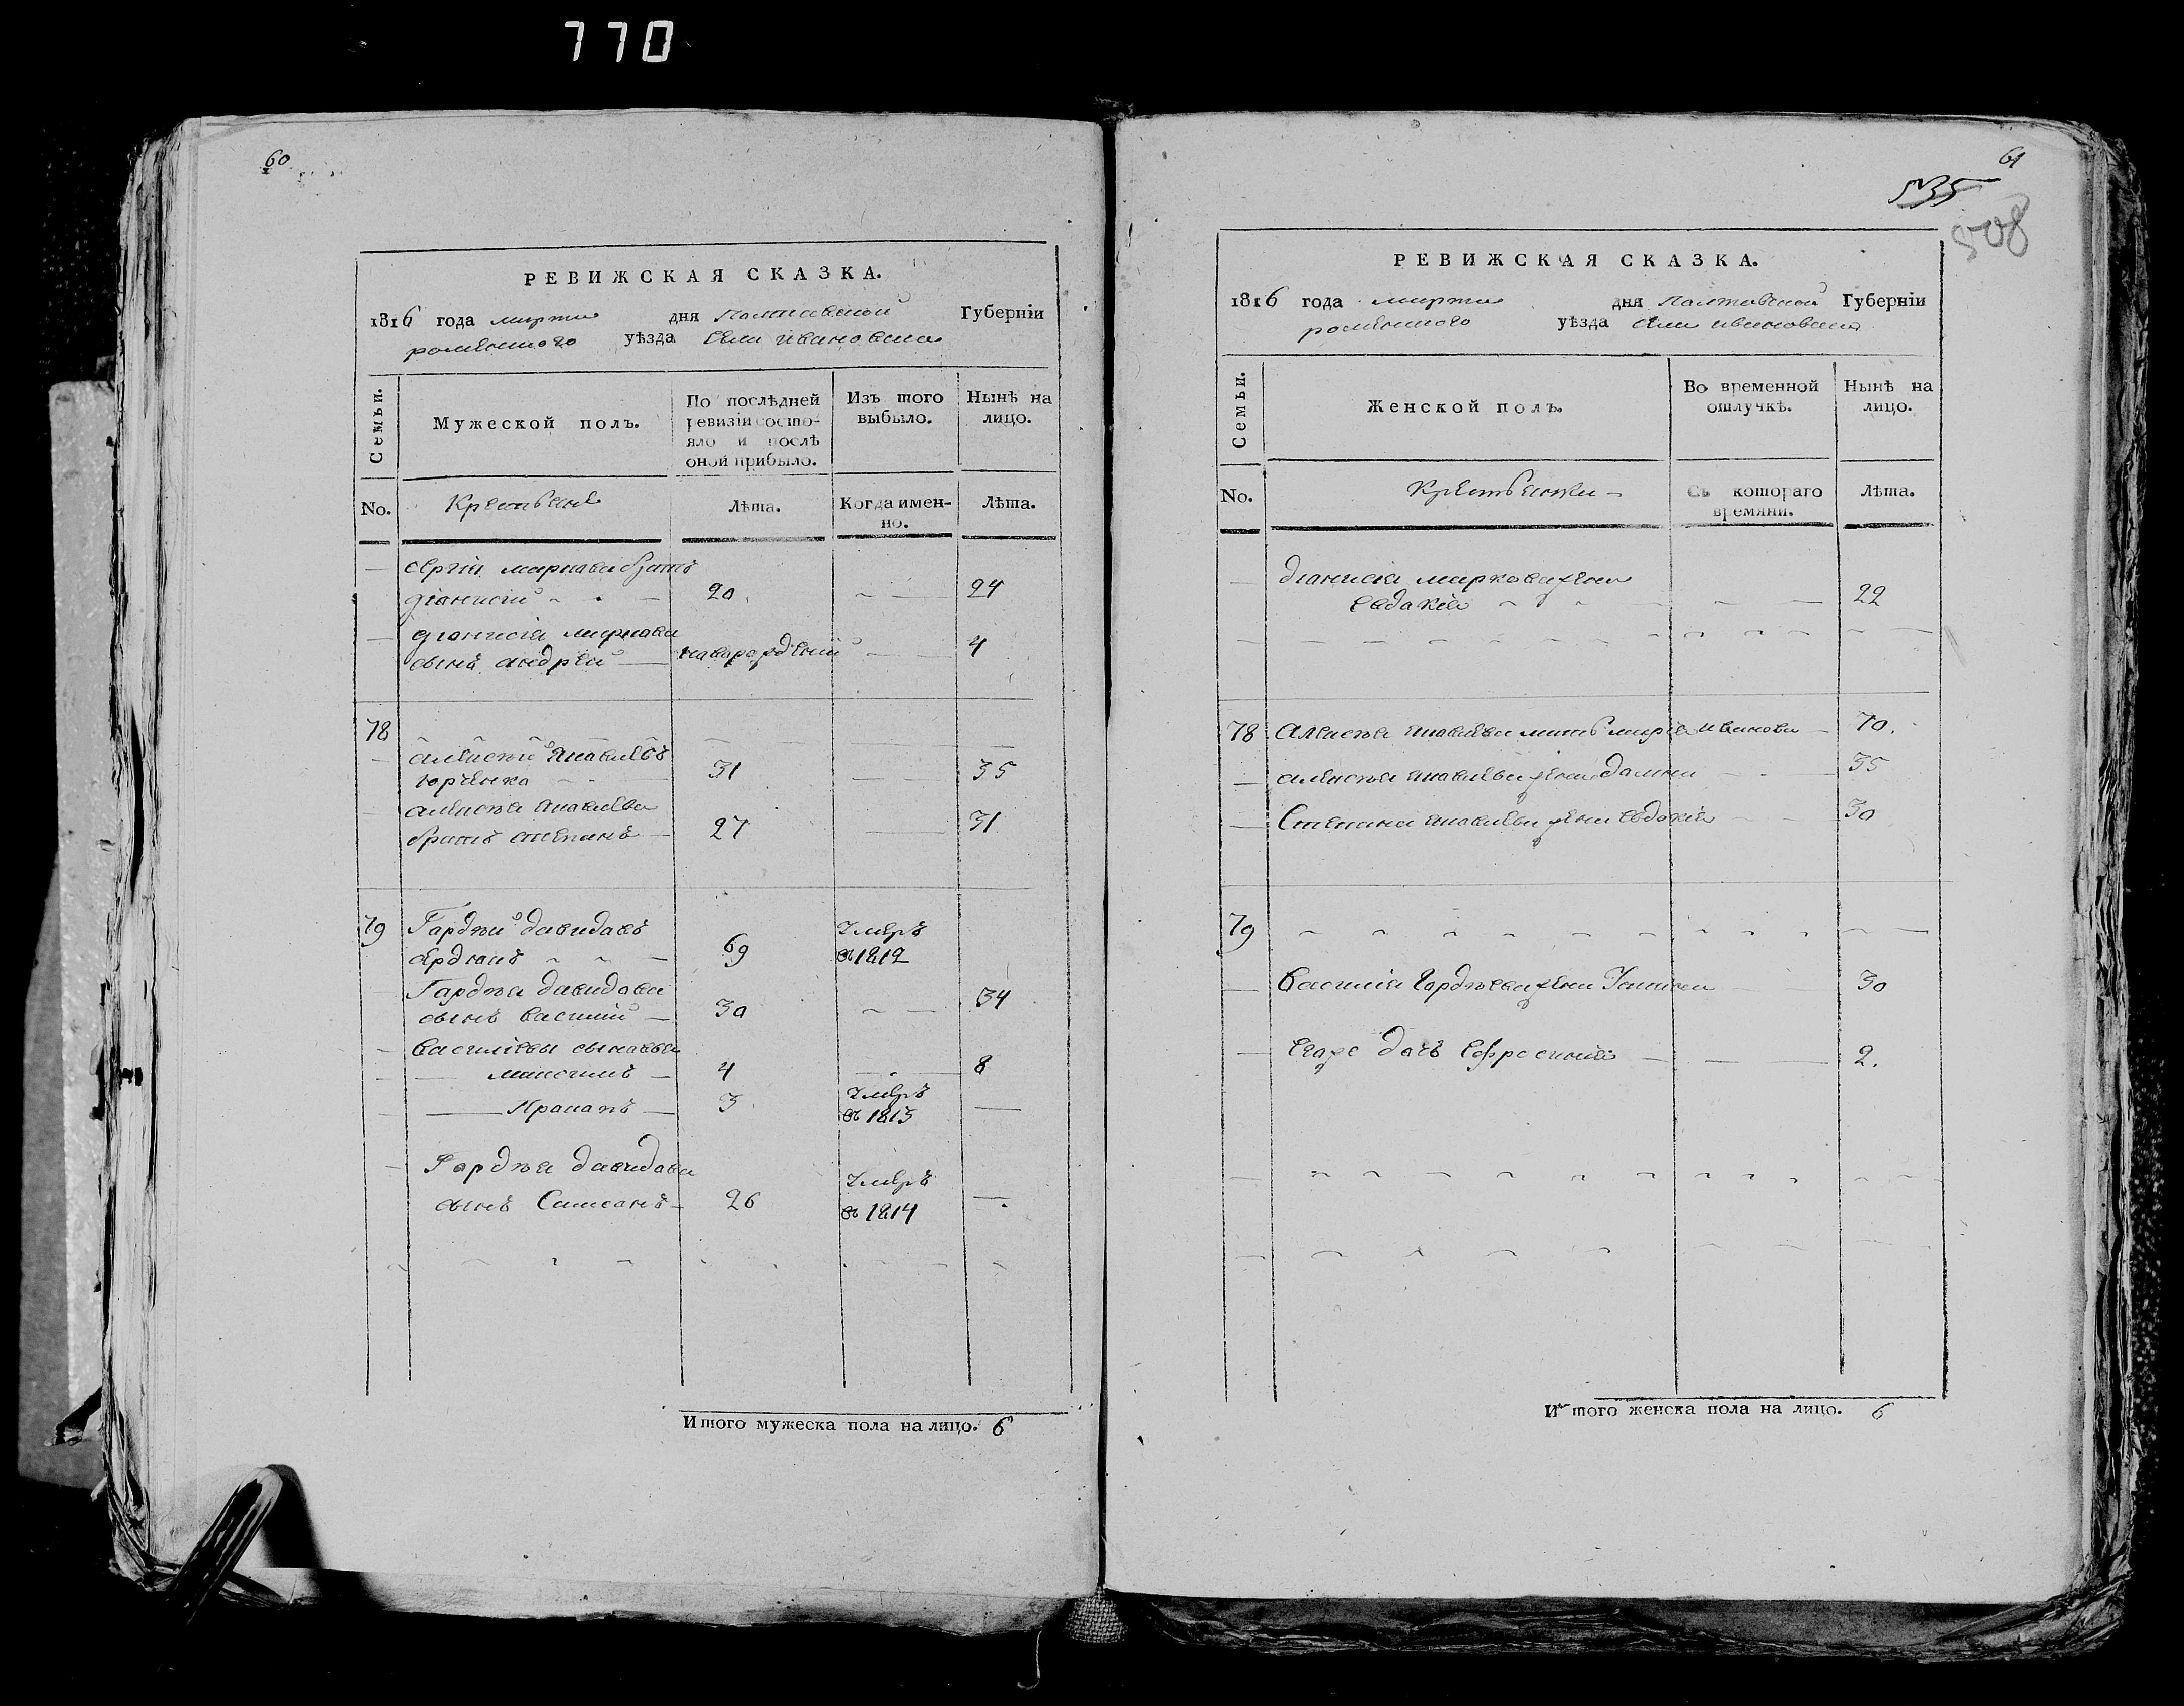 770
60
РЕВИЖСКАЯ СКАЗКА.
1816 года марта дня Полтавской Губерніи
роменского уѣзда села ивановки
Семьи.
Мужеской полъ.
По послѣдней ревизіи состояло и послѣ оной прибыло.
Изъ того выбыло.
Нынѣ на лицо.
No.
Крестьяне
Лѣта.
Когда именно.
Лѣта.
сергія маркова братъ
діанисій 20 24
дианисія маркова
сынъ андрей новарожденій 4
78
алексѣй Яковлевъ
юрченко 31 35
алексѣя яковлева
братъ степанъ 27 31
79 Гордѣй давидовъ умеръ
69 въ 1812
Гордѣя давидова
сынъ василий 30 34
василіевы сыновья
максимъ 4 8
Прокопъ 3 умеръ
въ 1813
Гордѣя давидова
сынъ Самсонъ 26 умеръ
въ 1814
Итого мужеска пола на лицо. 6
61
535
508
РЕВИЖСКАЯ СКАЗКА.
1816 года марта дня Полтавской Губерніи
роменского уѣзда села ивановки
Семьи.
Женской полъ.
Во временной отлучкѣ.
Нынѣ на лицо.
No.
Крестьянки
Съ котораго времяни.
Лѣта.
діанисія маркова жена
евдокія 22
78 Алексѣя яковлева мать марія иванова 70.
алексѣя яковлева жена домна 35
Степана яковлева жена евдокія 30
79
Василія Гордѣева жена 30
Егоже дочь ефросинія 2.
Итого женска пола на лицо. 6